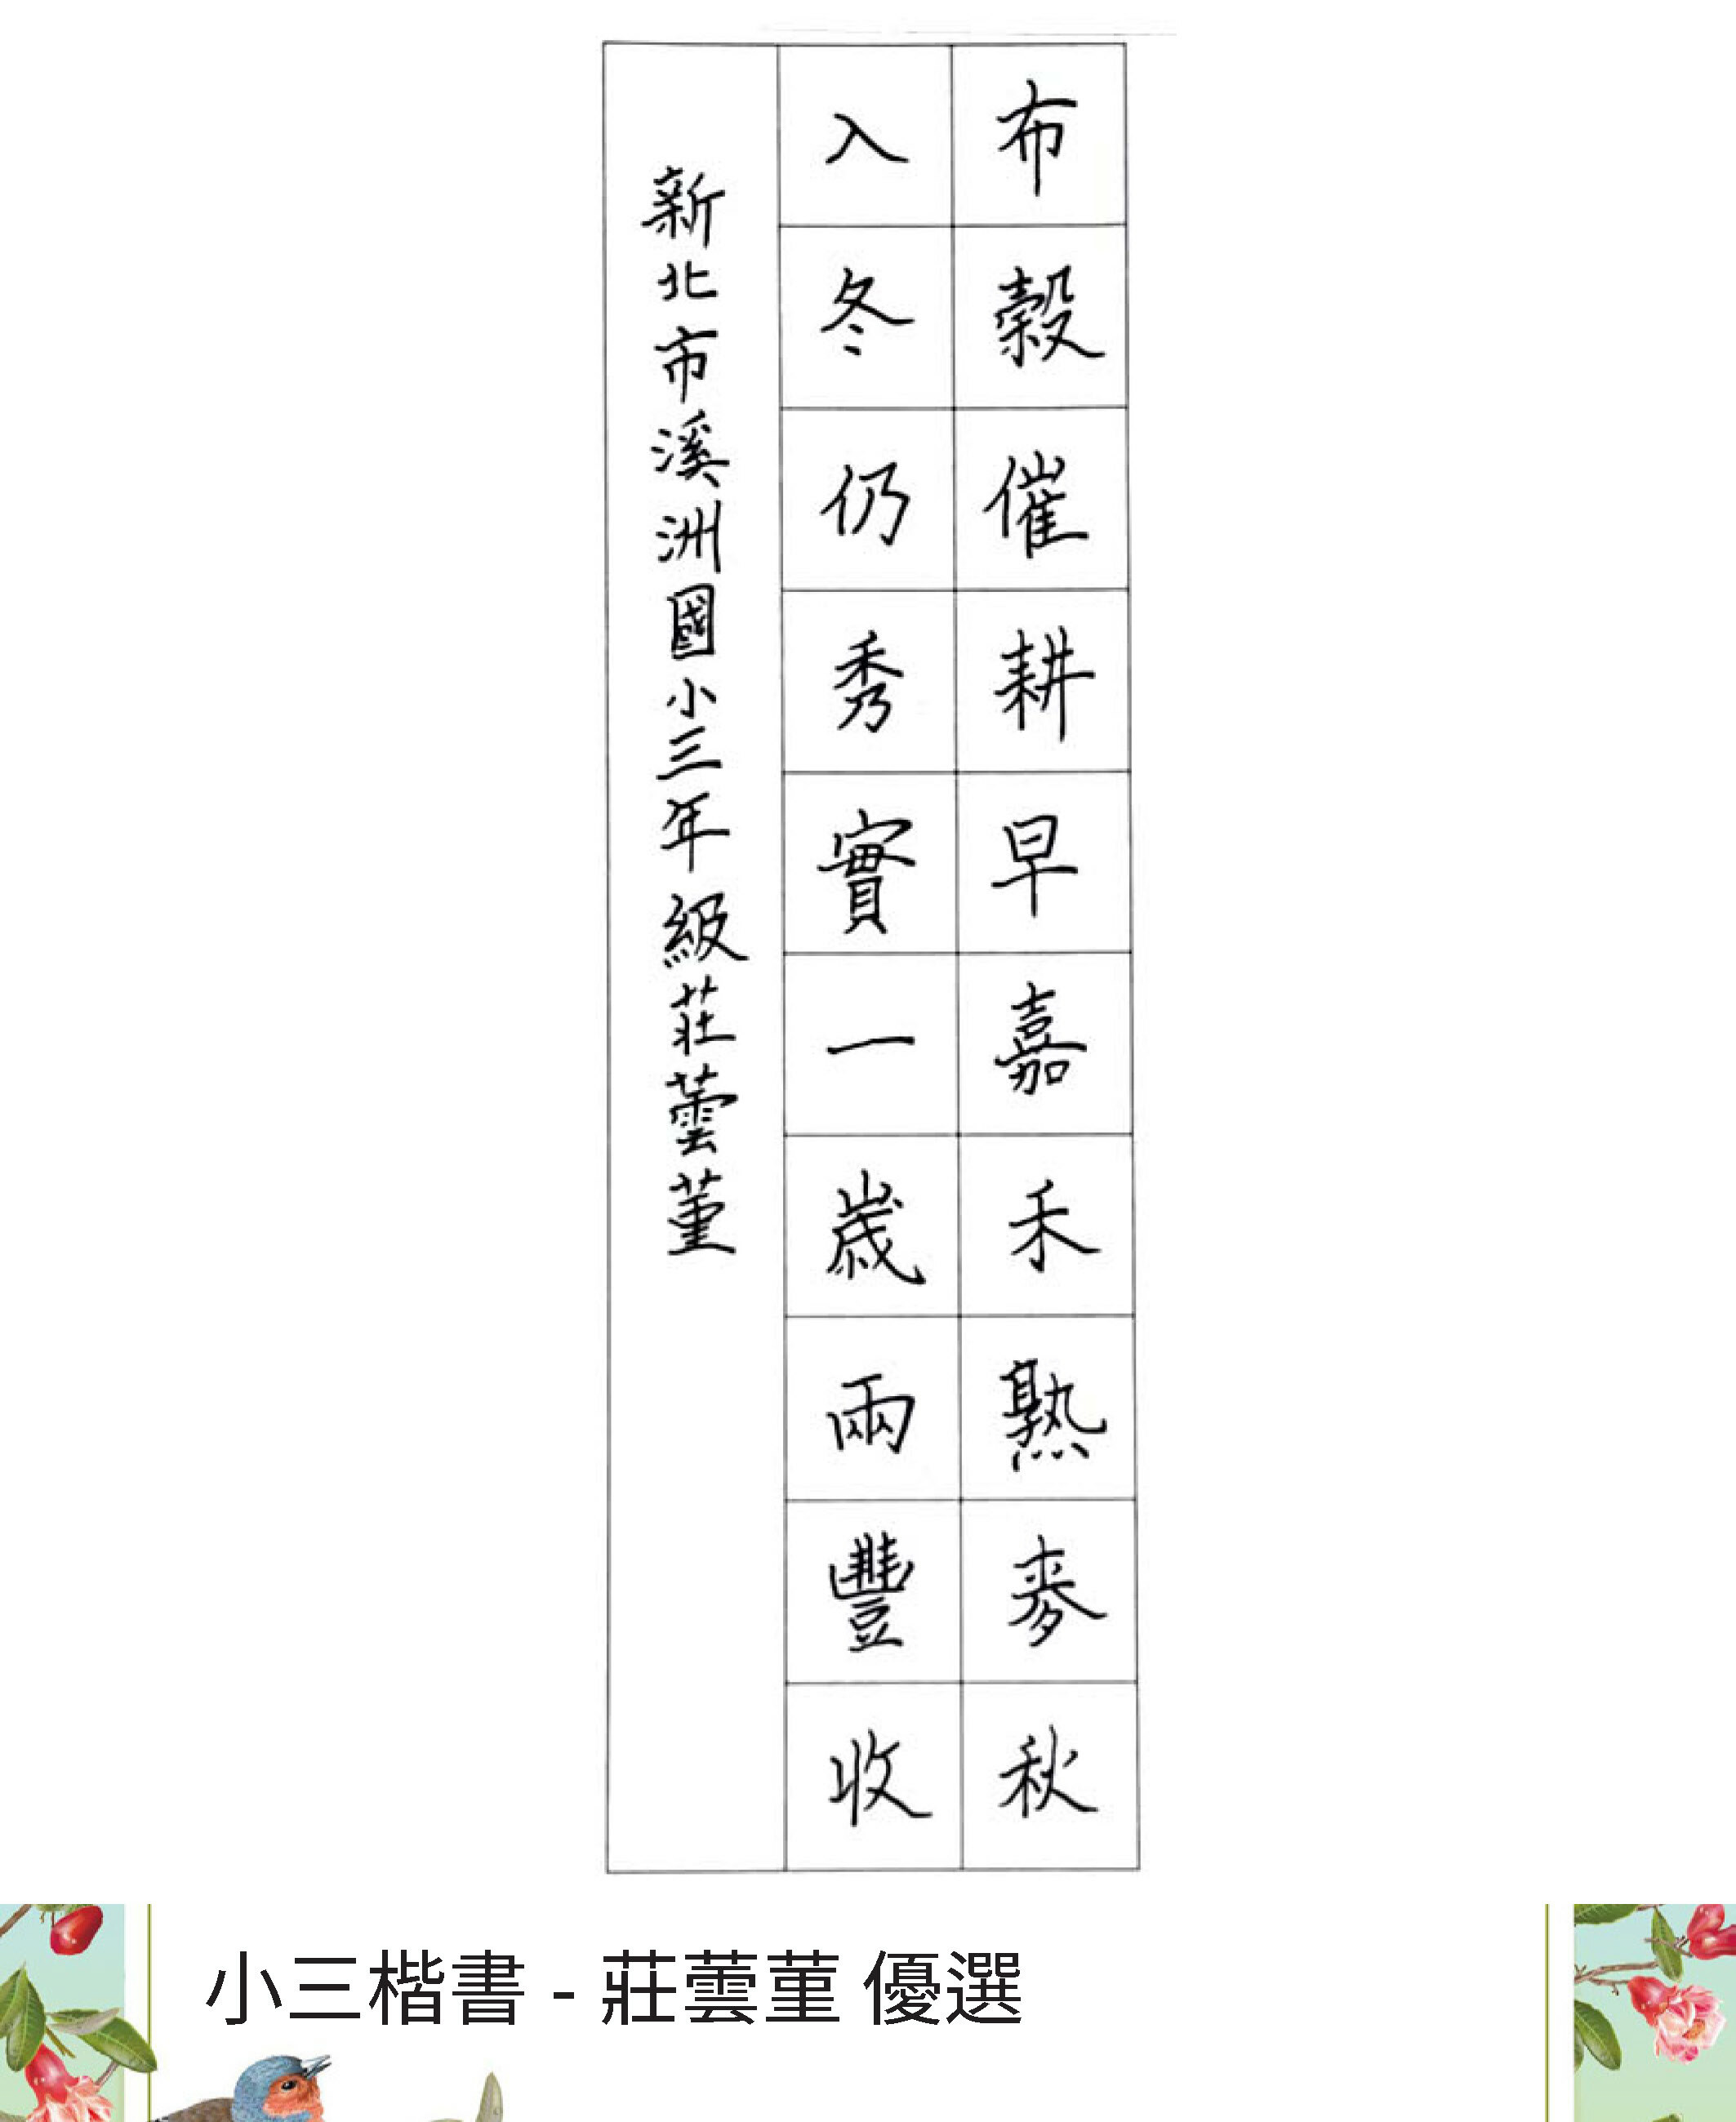 布穀催耕早嘉禾熟麥秋
入冬仍秀實一歲兩豐收
新北市溪洲國小三年級莊蕓菫
小三楷書 - 莊蕓菫 優選